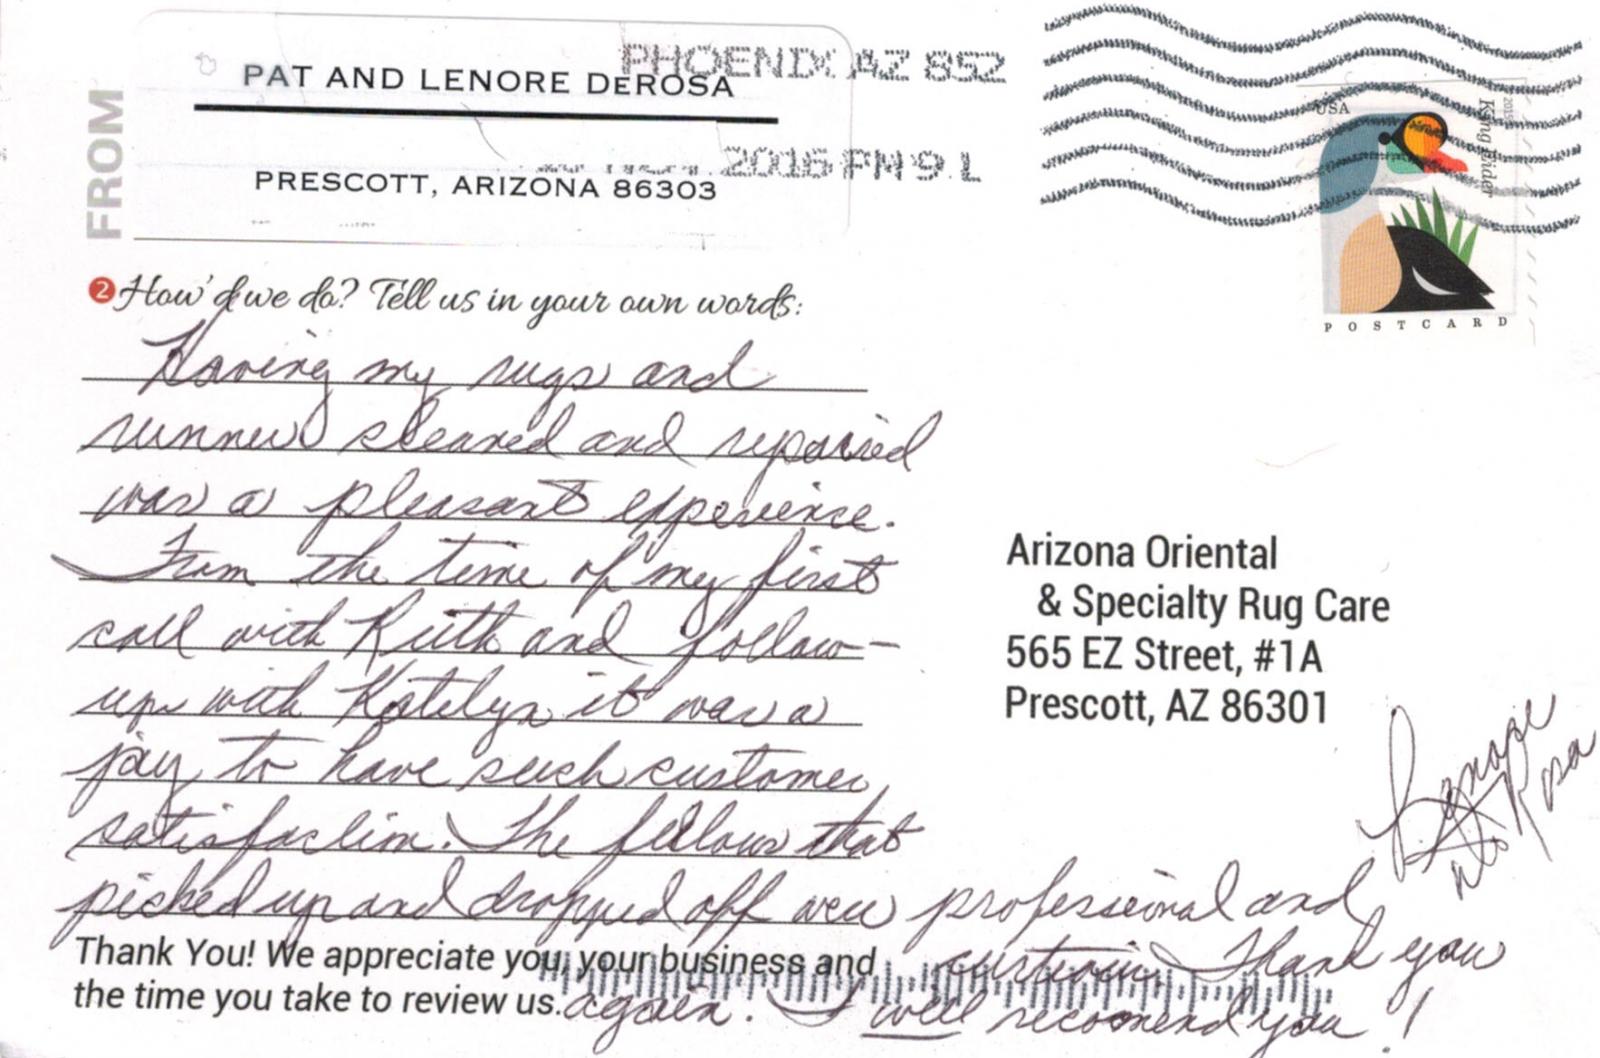 FROM
PAT AND LENORE DEROSA
PRESCOTT, ARIZONA 86303
PHOENIX AZ 852
2016 PM 9 L
USA
King Eider
2015
POSTCARD
2 How'd we do? Tell us in your own words:
Having my rugs and
runner cleaned and repaired
was a pleasant experience.
From the time of my first
call with Ruth and follow-
up with Katelyn it was a
joy to have such customer
satisfaction. The fellows that
picked up and dropped off were professional and
Thank you
again. I will recomend you!
Thank You! We appreciate you, your business and
the time you take to review us.
Arizona Oriental
& Specialty Rug Care
565 EZ Street, #1A
Prescott, AZ 86301
Lenore
DeRosa